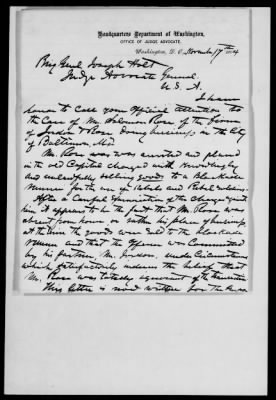 Headquarters Department of Washington,
OFFICE OF JUDGE ADVOCATE,
Washington, D. C. November 17th 1864
Brig Genl Joseph Holt
Judge Advocate General
U. S. A.
I have
honor to call your Official attention to
the Case of Mr Rose of the firm
of & Rose doing business in the City
of Baltimore, Md
Mr. Rose was was arrested and placed
in the old Capitol charged with knowingly
and unlawfully selling goods to a Blockade
runner for the use of Rebels and Rebel Soldiers.
After a Careful examination of the charges against
him it appears to be the fact that Mr. Rose was
absent from home or within his place of business
at the time the goods were sold to the blockade
runner and that the offence was Committed
by his partner, Mr. under Circumstances
which satisfactorily induces the belief that
Mr. Rose was totally ignorant of the transaction
This letter is now written for the